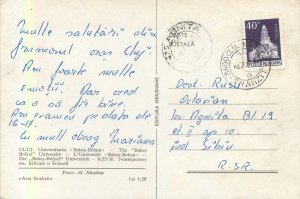 Multe salutări din
frumosul oraș Cluj.
Am foarte multe
emoții. Dar cred
ca o să fie bine.
Am examen pe data de
16-17.
Cu mult drag Mariana
CLUJ. Universitatea «Babeș-Bolyai» — The "Babeș-
Bolyai" University — L'Université «Babeș-Bolyai» —
Die „Babeș-Bolyai" Universität — КЛУЖ. Университет
им. Бабеша и Бояй
Foto: Al. Mendrea
«Arta Grafică» Lei 1,50
EDITURA MERIDIANE
AGNITA
POSTALA
40
Dest. Rusu
Octavian
loc. Agnita Bl 19
et. II ap 10
jud Sibiu
R.S.R.